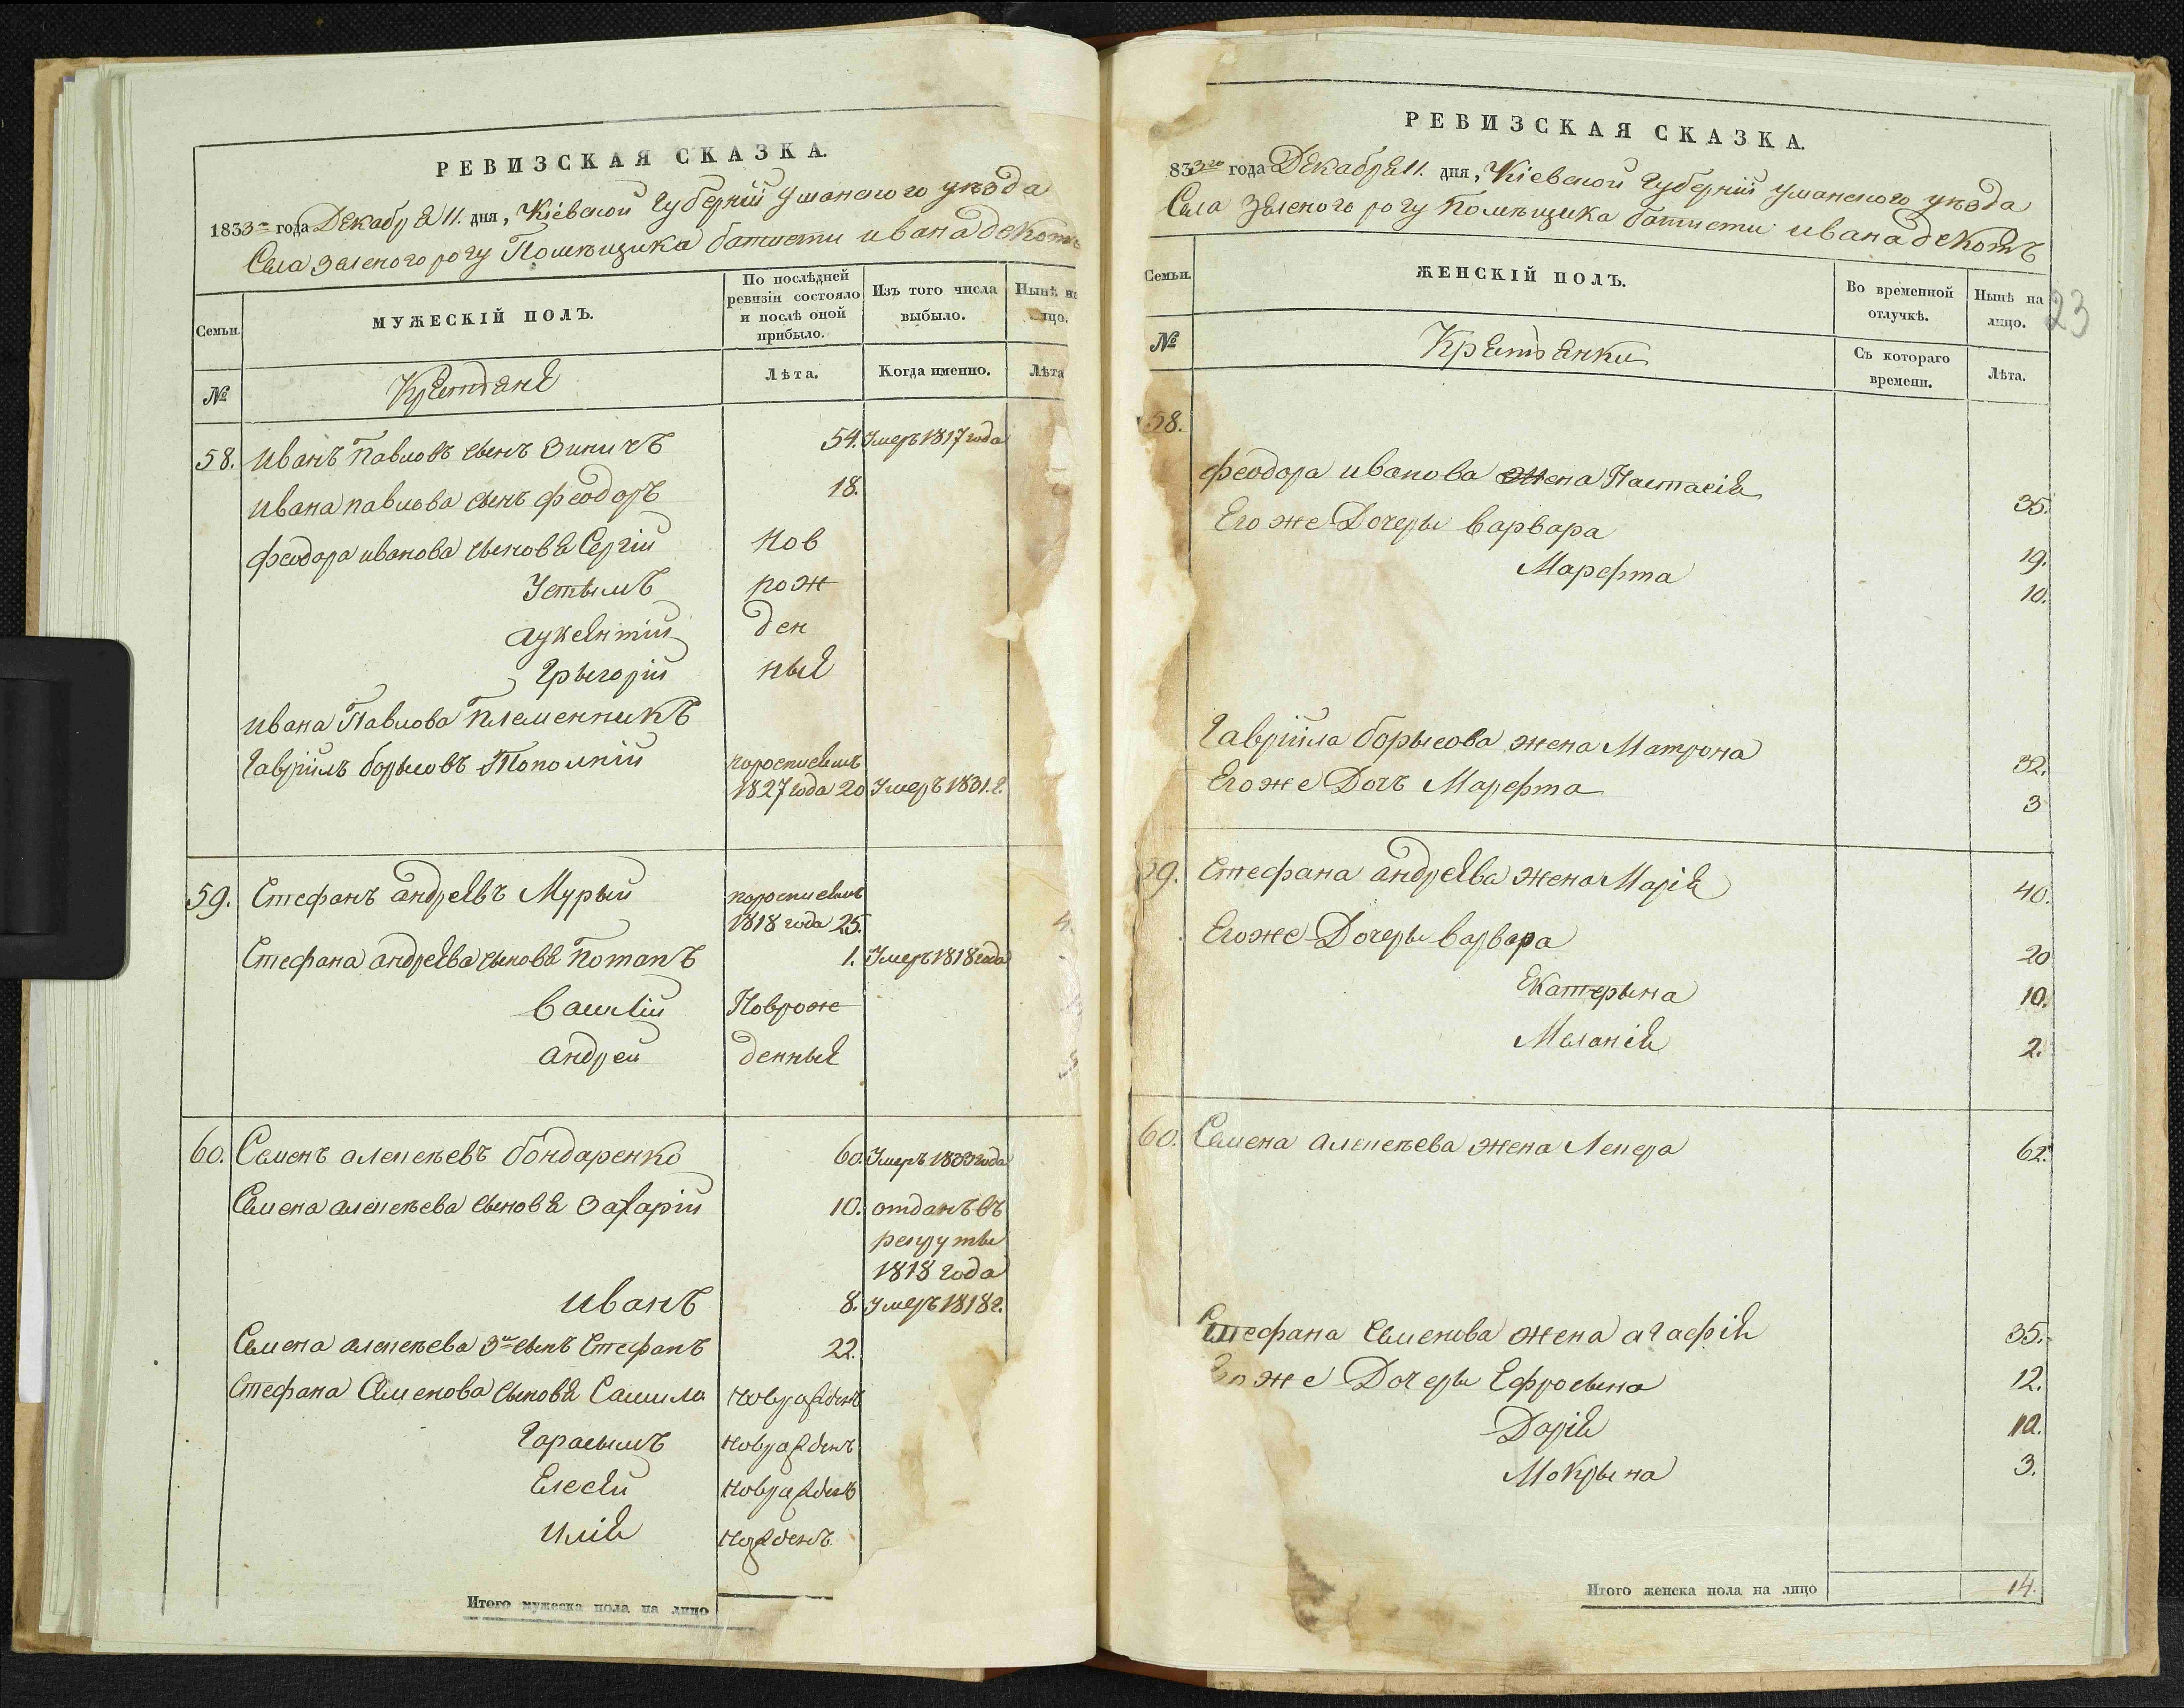 РЕВИЗСКАЯ СКАЗКА.
1833го года Декабря 11. дня, Кіевской Губерніи Уманского уѣзда
Села Зеленого рогу Помѣщика батисти ивана декот
Семьи.
МУЖЕСКІЙ ПОЛЪ.
По послѣдней ревизіи состояло и послѣ оной прибыло.
Изъ того числа выбыло.
Нынѣ на лицо.
№
Крестьяне
Лѣта.
Когда именно.
Лѣта
58. Иванъ Павловъ сынъ Зиничъ 54. Умеръ 1817 года
Ивана павлова сынъ феодоръ 18.
феодора иванова сыновя Сергій Нов
Устымъ рож
Аукентій ден
Грыгорій ные
Ивана Павлова Племенникъ
Гавріилъ борысовъ Тополній
1827 года 20 Умеръ 1831. г.
59. Стефанъ андреевъ Мурый
1818 года 25.
Стефана андреева сыновя Потапъ 1. Умеръ 1818 года
Василій Новрож
андрей денные
60. Семенъ алексѣевъ бондаренко 60. Умеръ 1833 года
Семена алексѣева сыновя Захарій 10. отданъ въ
рекруты
1818 года
Иванъ 8. умеръ 1818 г.
Семена алексѣева 3й сынъ Стефанъ 22.
Стефана Семенова сыновя Самила новрожденъ
Гарасымъ новрожденъ
Елесей новрожденъ
Илія
Итого мужеска пола на лицо
РЕВИЗСКАЯ СКАЗКА.
833го года Декабря 11. дня, Кіевской Губерніи Уманского уѣзда
Села Зеленого рогу Помѣщика батисти ивана декотъ
23
Семьи.
ЖЕНСКІЙ ПОЛЪ.
Во временной отлучкѣ.
Нынѣ на лицо.
№
Крестьянки
Съ котораго времени.
Лѣта.
58.
феодора иванова жена Настасія 35.
Его же Дочеры варвара 19.
Марфта 10.
Гавріила борысова жена Матрона 32.
Его же Дочъ Марфта 3
59. Стефана андреева жена Марія 40.
Его же Дочеры варвара 20
Екатерына 10.
Меланія 2.
60. Семена алексѣева жена Лепера 62.
Стефана Семенова жена агафія 35.
Его же Дочеры Ефросына 12.
Дарія 10.
Мокрына 3.
Итого женска пола на лицо 14.